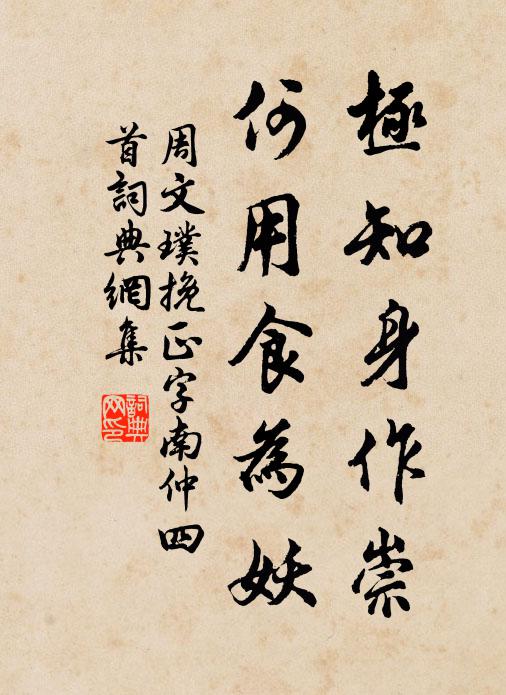 極知身作祟
何用食為妖
周文璞挽正字南仲四
首詞典網集
詞典
网印